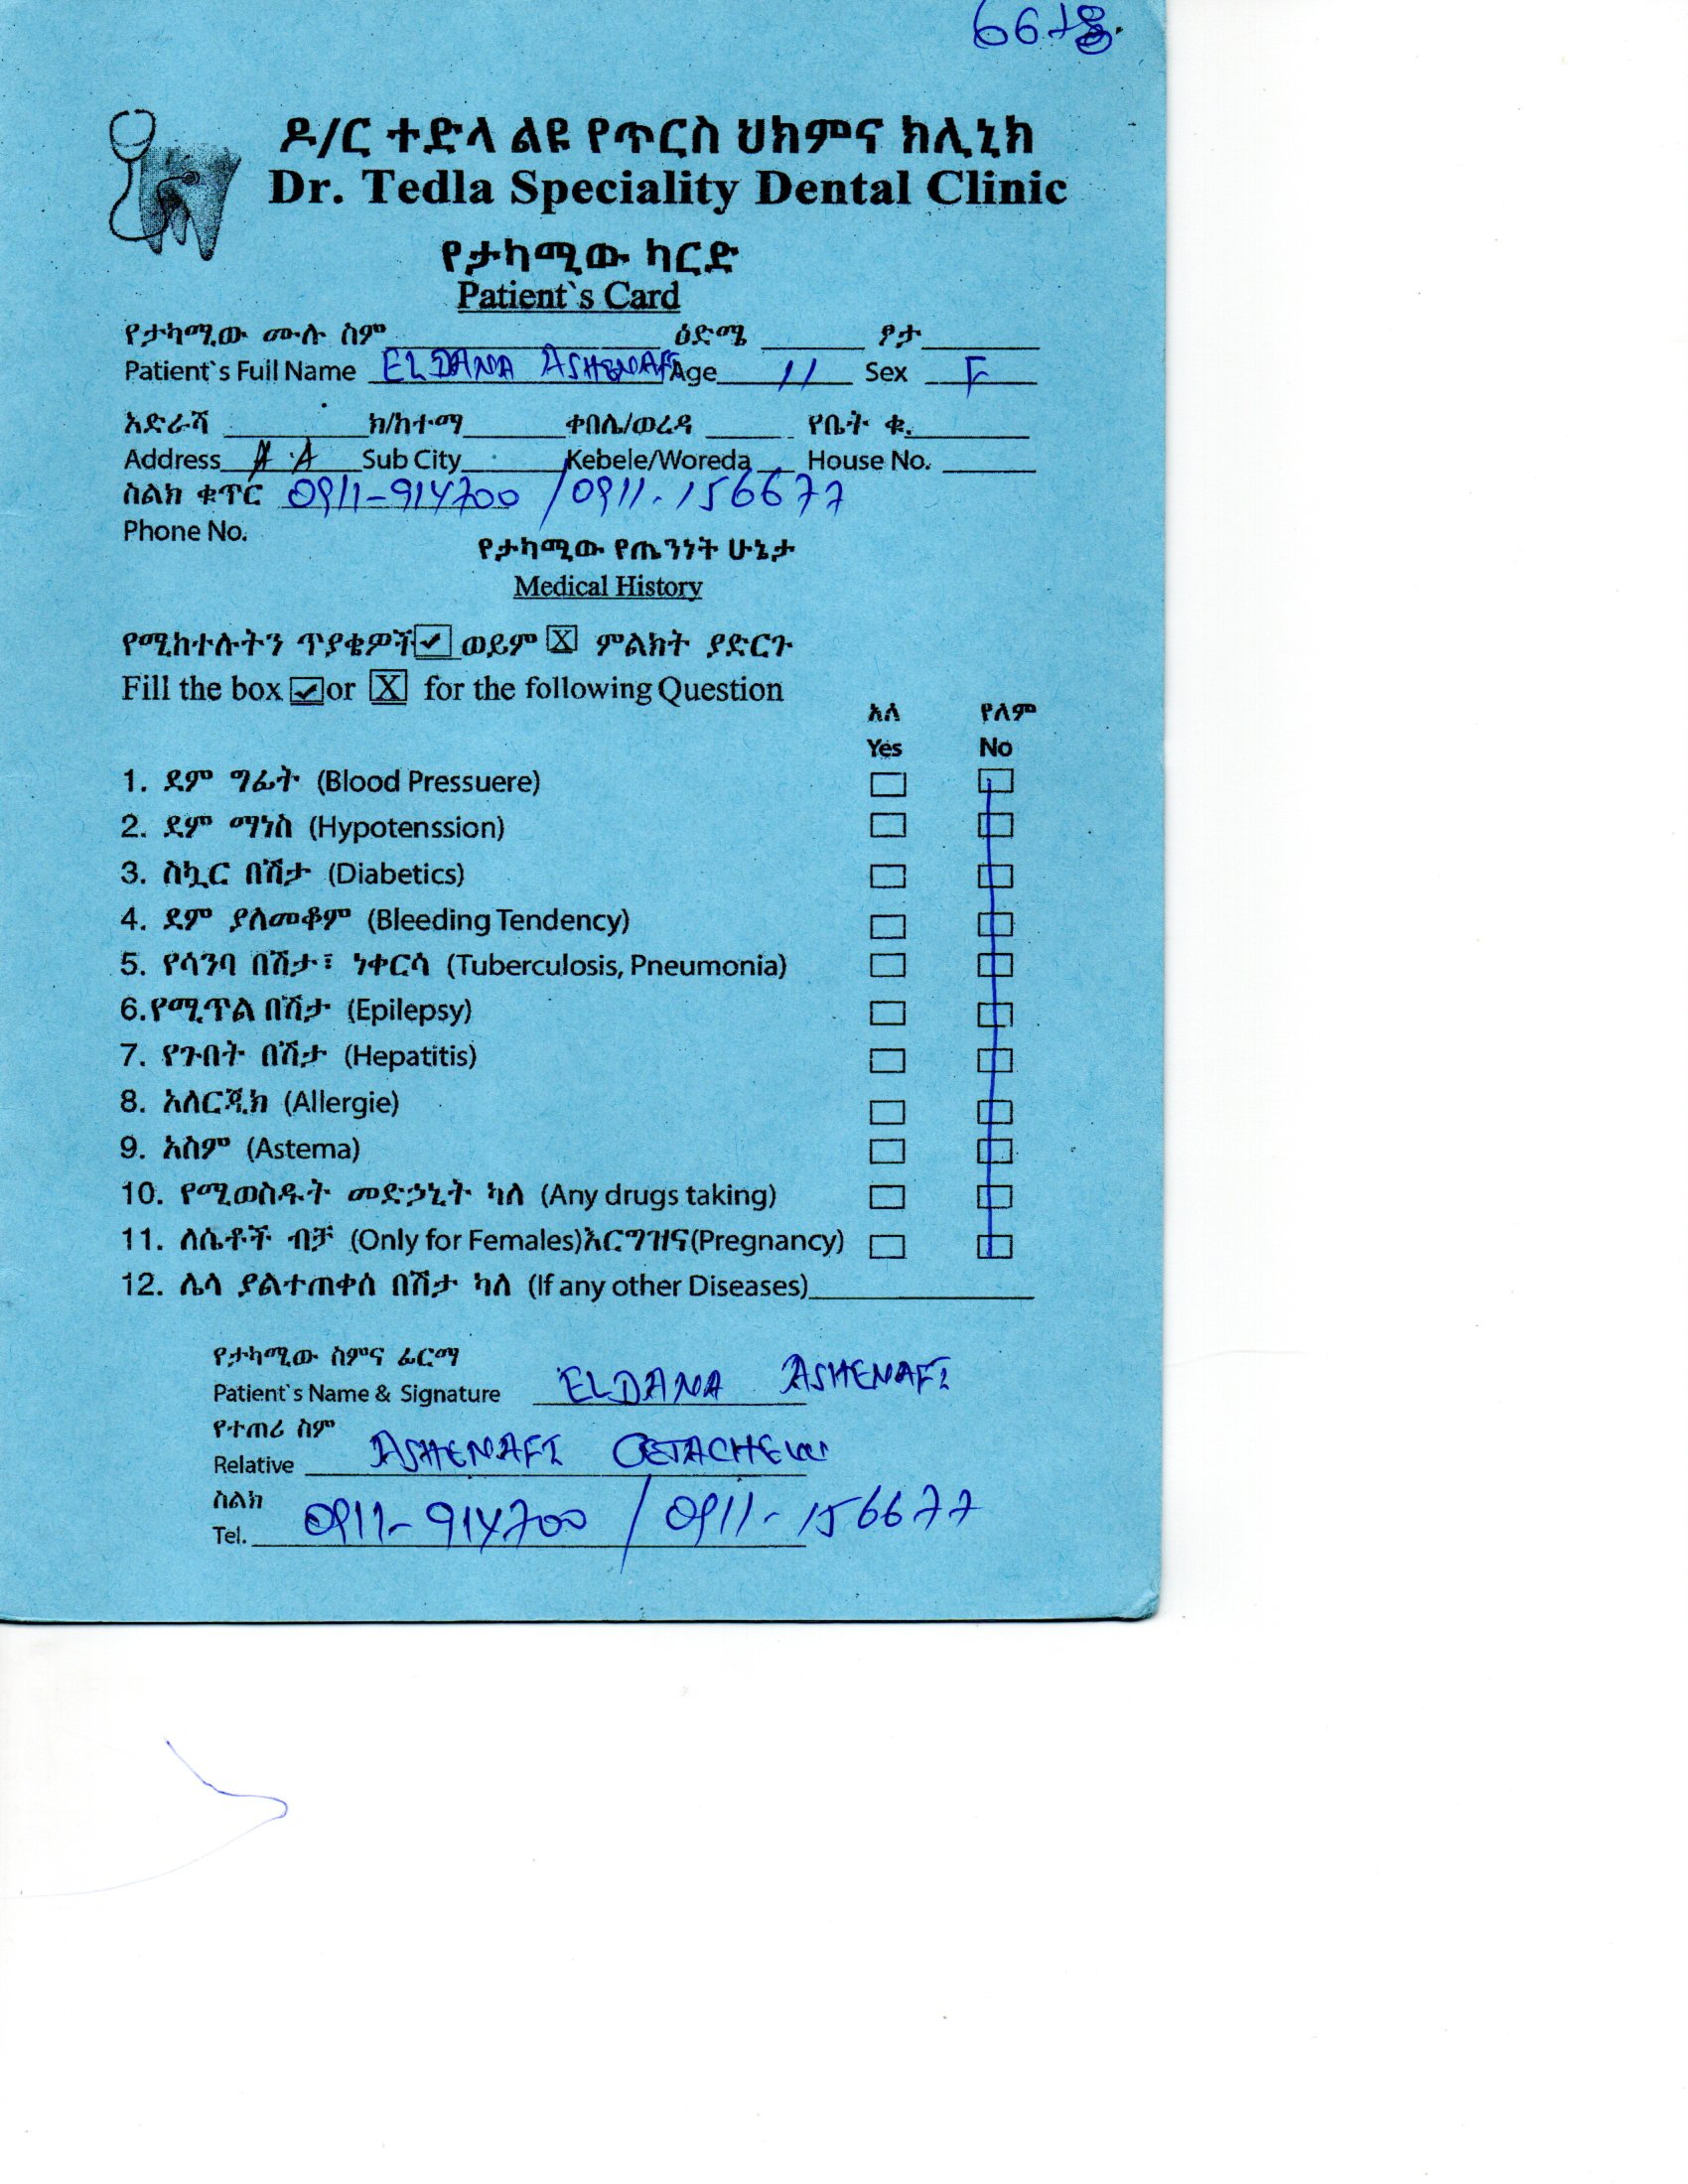 ዶ/ር ተድላ ልዩ የጥርስ ህክምና ክሊኒክ
Dr. Tedla Speciality Dental Clinic
የታካሚው ካርድ
Patient`s Card
የታካሚው ሙሉ ስም ዕድሜ ፆታ
Patient`s Full Name ELDANA ASHENAFI Age 11 Sex F
አድራሻ ክ/ከተማ ቀበሌ/ወረዳ የቤት ቁ.
Address A.A Sub City Kebele/Woreda House No.
ስልክ ቁጥር 0911-914700 / 0911-156677
Phone No.
የታካሚው የጤንነት ሁኔታ
Medical History
የሚከተሉትን ጥያቄዎች ✓ ወይም X ምልክት ያድርጉ
Fill the box ✓ or X for the following Question
አለ የለም
Yes No
1. ደም ግፊት (Blood Pressuere)
2. ደም ማነስ (Hypotenssion)
3. ስኳር በሽታ (Diabetics)
4. ደም ያለመቆም (Bleeding Tendency)
5. የሳንባ በሽታ፣ ነቀርሳ (Tuberculosis, Pneumonia)
6.የሚጥል በሽታ (Epilepsy)
7. የጉበት በሽታ (Hepatitis)
8. አለርጂክ (Allergie)
9. አስም (Astema)
10. የሚወስዱት መድኃኒት ካለ (Any drugs taking)
11. ለሴቶች ብቻ (Only for Females)እርግዝና(Pregnancy)
12. ሌላ ያልተጠቀሰ በሽታ ካለ (If any other Diseases)
የታካሚው ስምና ፊርማ
Patient`s Name & Signature ELDANA ASHENAFI
የተጠሪ ስም
Relative ASHENAFI GETACHEW
ስልክ
Tel. 0911-914700 / 0911-156677